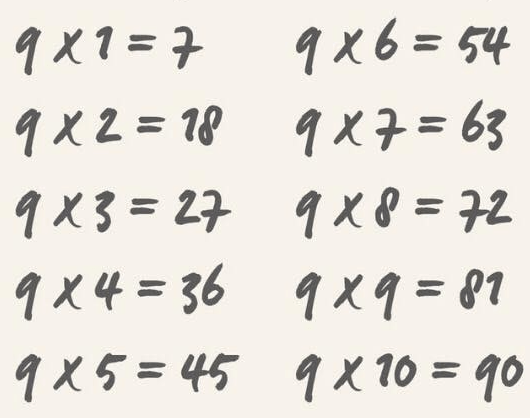 9 x 1 = 7
9 x 2 = 18
9 x 3 = 27
9 x 4 = 36
9 x 5 = 45
9 x 6 = 54
9 x 7 = 63
9 x 8 = 72
9 x 9 = 81
9 x 10 = 90